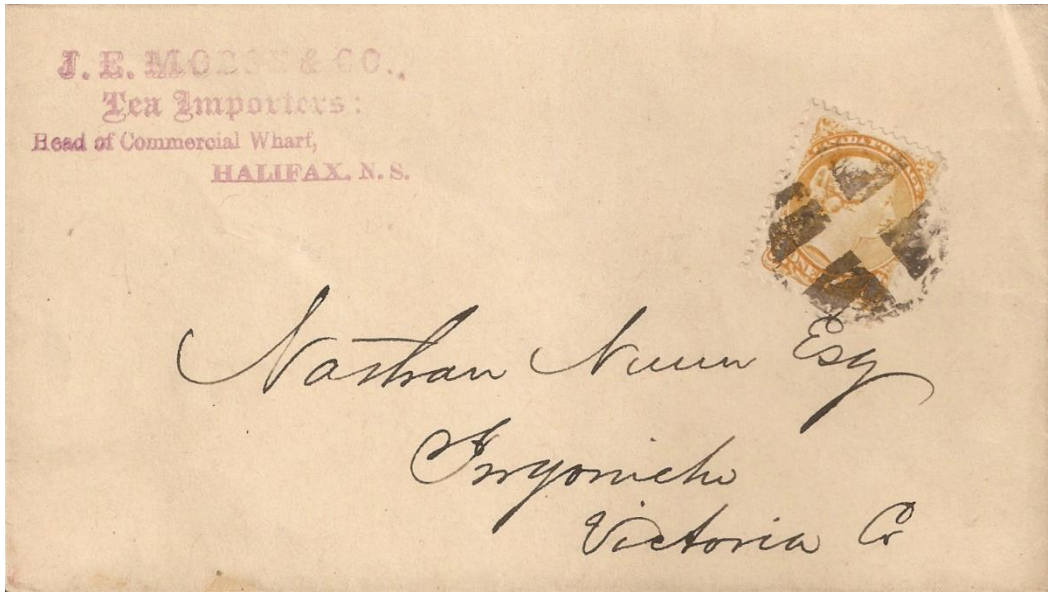 J. E. MORSE & CO.,
Tea Importers:
Head of Commercial Wharf,
HALIFAX, N. S.
CANADA POSTAGE
Nathan Nunn Esq
Ingoniche
Victoria Co